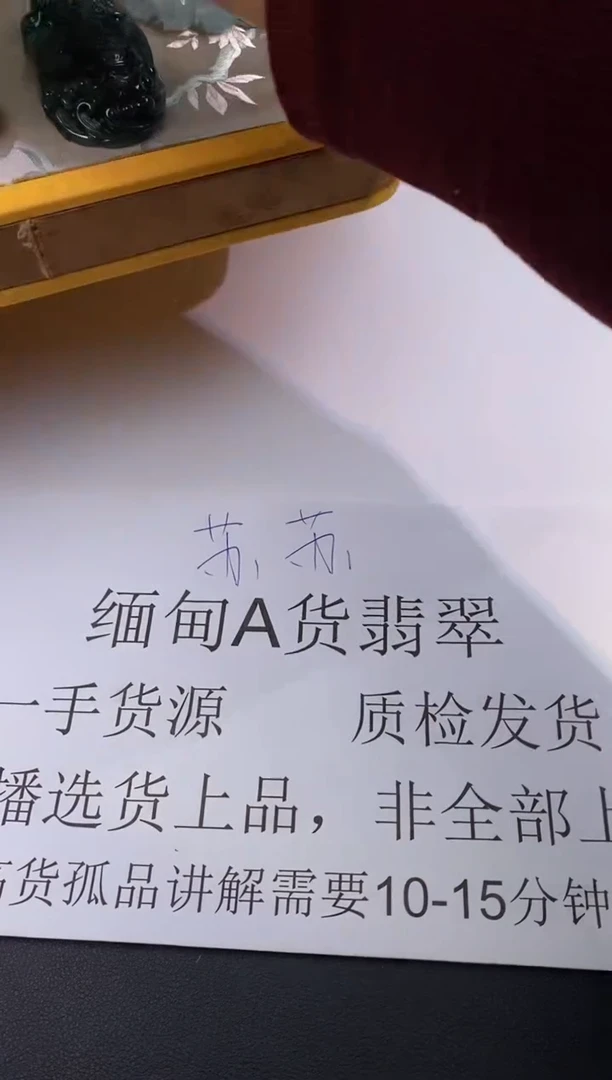 苏苏
缅甸A货翡翠
一手货源 质检发货
播选货上品，非全部上
高货孤品讲解需要10-15分钟